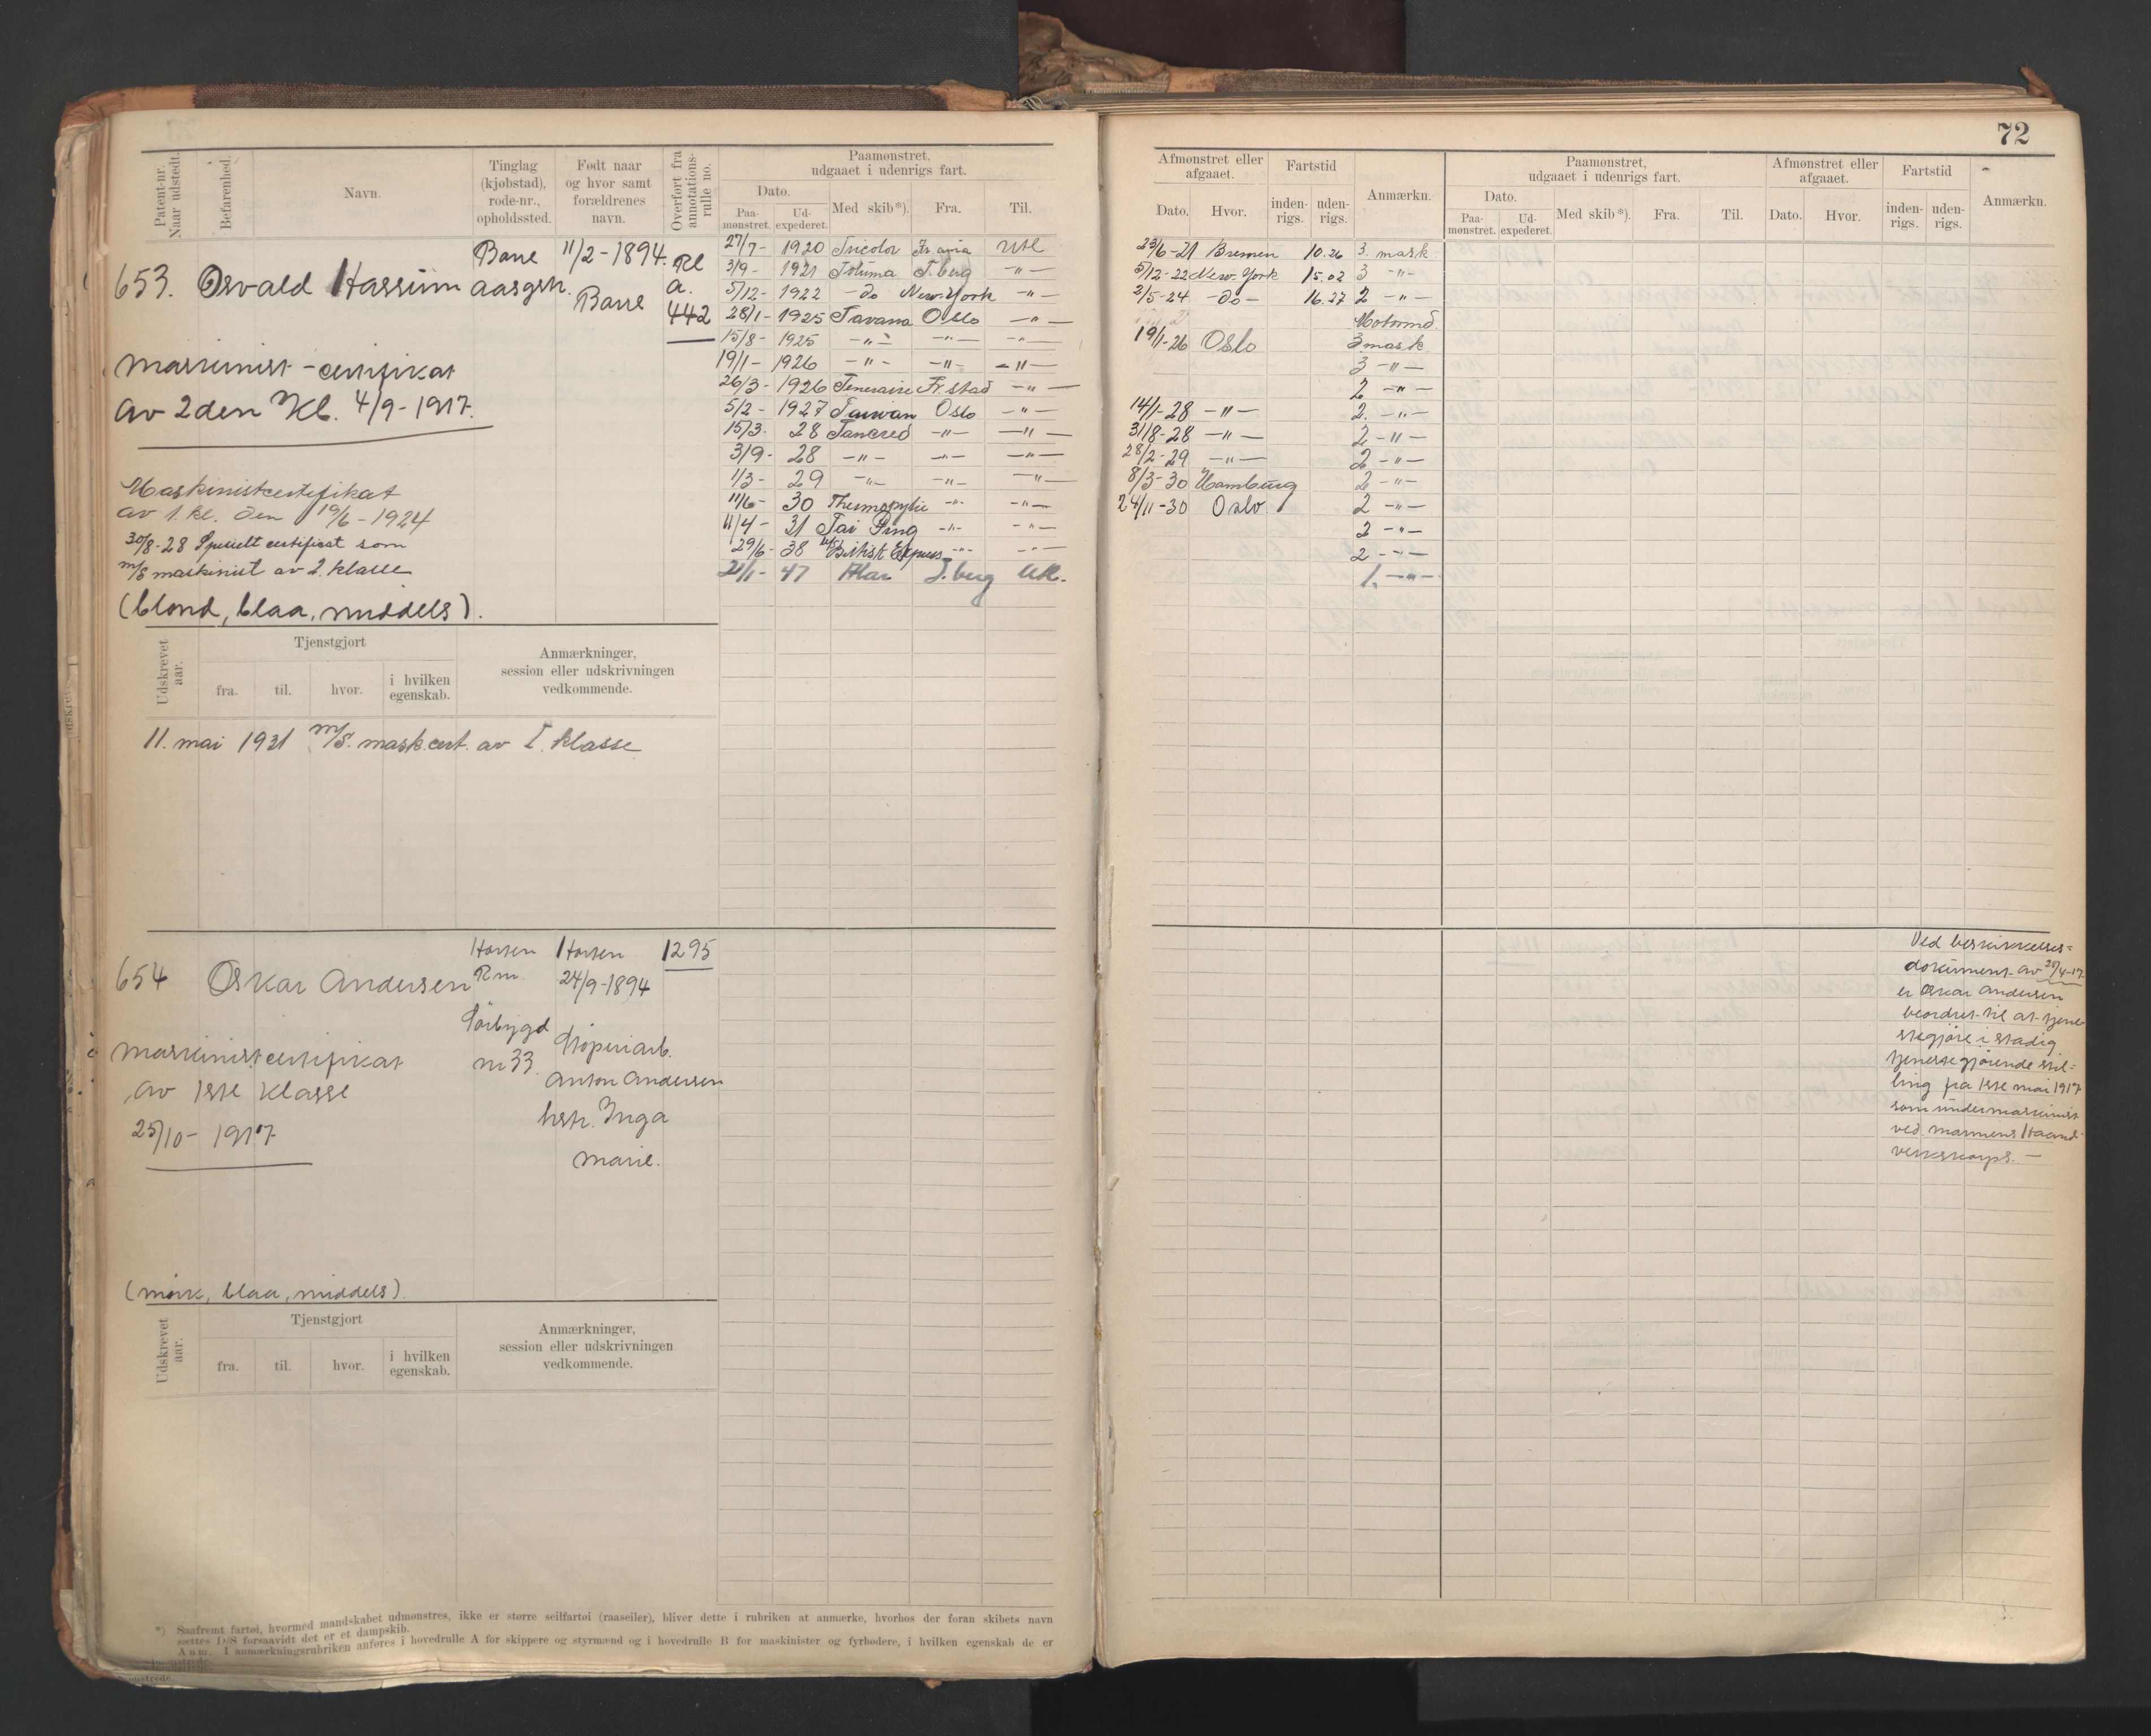 72
Patent-nr. Naar udstedt.
Befarenhed.
Navn.
Tinglag (kjøbstad), rode-nr., opholdssted.
Født naar og hvor samt forældrenes navn.
Overført fra annotations-rulle no.
Paamønstret, udgaaet i udenrigs fart.
Dato.
Paa-mønstret.
Ud-expederet.
Med skib*).
Fra.
Til.
Afmønstret eller afgaaet.
Dato.
Hvor.
Fartstid
inden-rigs.
uden-rigs.
Anmærkn.
Paamønstret, udgaaet i udenrigs fart.
Dato.
Paa-mønstret.
Ud-expederet.
Med skib*).
Fra.
Til.
Afmønstret eller afgaaet.
Dato.
Hvor.
Fartstid
inden-rigs.
uden-rigs.
Anmærkn.
653. Osvald Hassum
Barre
aasgsh.
11/2-1894.
Barre
Rl
a.
442
Maskinist-certifikat
av 2den Kl. 4/9-1917.
Maskinistcertifikat
av 1. kl. den 19/6-1924
30/8-28 Specielt certificat som
m/s maskinist av 2. klasse
(blond, blaa, middels).
27/7- 1920 Tricolor Fr.avia Utl
3/9- 1921 Totuma T.berg -"-
5/12- 1922 -do New.York -"-
28/1- 1925 Tavana Oslo -"-
15/8- 1925 -"- -"- -"-
19/1- 1926 -"- -"- -"-
26/3- 1926 Temeraire Fr.stad -"-
5/2- 1927 Taiwan Oslo -"-
15/3- 28 Tancred -"- -"-
3/9- 28 -"- -"- -"-
1/3- 29 -"- -"- -"-
11/6- 30 Thermopylæ -"- -"-
11/4- 31 Tai Ping -"- -"-
29/6- 38 British Express -"- -"-
21/1- 47 T.berg Utl.
23/6-21 Bremen 10.26 3. mask
5/12-22 New.York 15.02 3 -"-
2/5-24 -do- 16.27 2 -"-
Motormd.
19/1-26 Oslo 3 mask
3 -"-
2 -"-
14/1-28 -"- 2. -"-
31/8-28 -"- 2 -"-
28/2-29 -"- 2 -"-
8/3-30 Hamburg 2 -"-
24/11-30 Oslo 2 -"-
2 -"-
2 -"-
1. -"-
Udskrevet aar.
Tjenstgjort
fra.
til.
hvor.
i hvilken egenskab.
Anmærkninger, session eller udskrivningen vedkommende.
11. mai 1931 m/s. mask.cert. av I. klasse
654 Oskar Andersen
Horten
Rm.
Sørbygd
nr 33.
Horten
24/9-1894
Støperiarb.
Anton Andersen
hstr. Inga
Marie.
1295
Maskinistcertifikat
av 1ste klasse
25/10-1917
(mørk, blaa, middels).
Ved beskikkelses=
dokument av 28/4-17
er Oskar Andersen
beordret til at tjene-
stegjøre i stadig
tjenestegjørende stil=
ling fra 1ste mai 1917
som undermaskinist
ved marinens Haand-
verkskorps. -
Udskrevet aar.
Tjenstgjort
fra.
til.
hvor.
i hvilken egenskab.
Anmærkninger, session eller udskrivningen vedkommende.
*) Saafremt fartøi, hvormed mandskabet udmønstres, ikke er større seilfartøi (raaseiler), bliver dette i rubriken at anmærke, hvorhos der foran skibets navn
sættes D/S forsaavidt det er et dampskib.
Anm. I anmærkningsrubriken anføres i hovedrulle A for skippere og styrmænd og i hovedrulle B for maskinister og fyrbødere, i hvilken egenskab de er